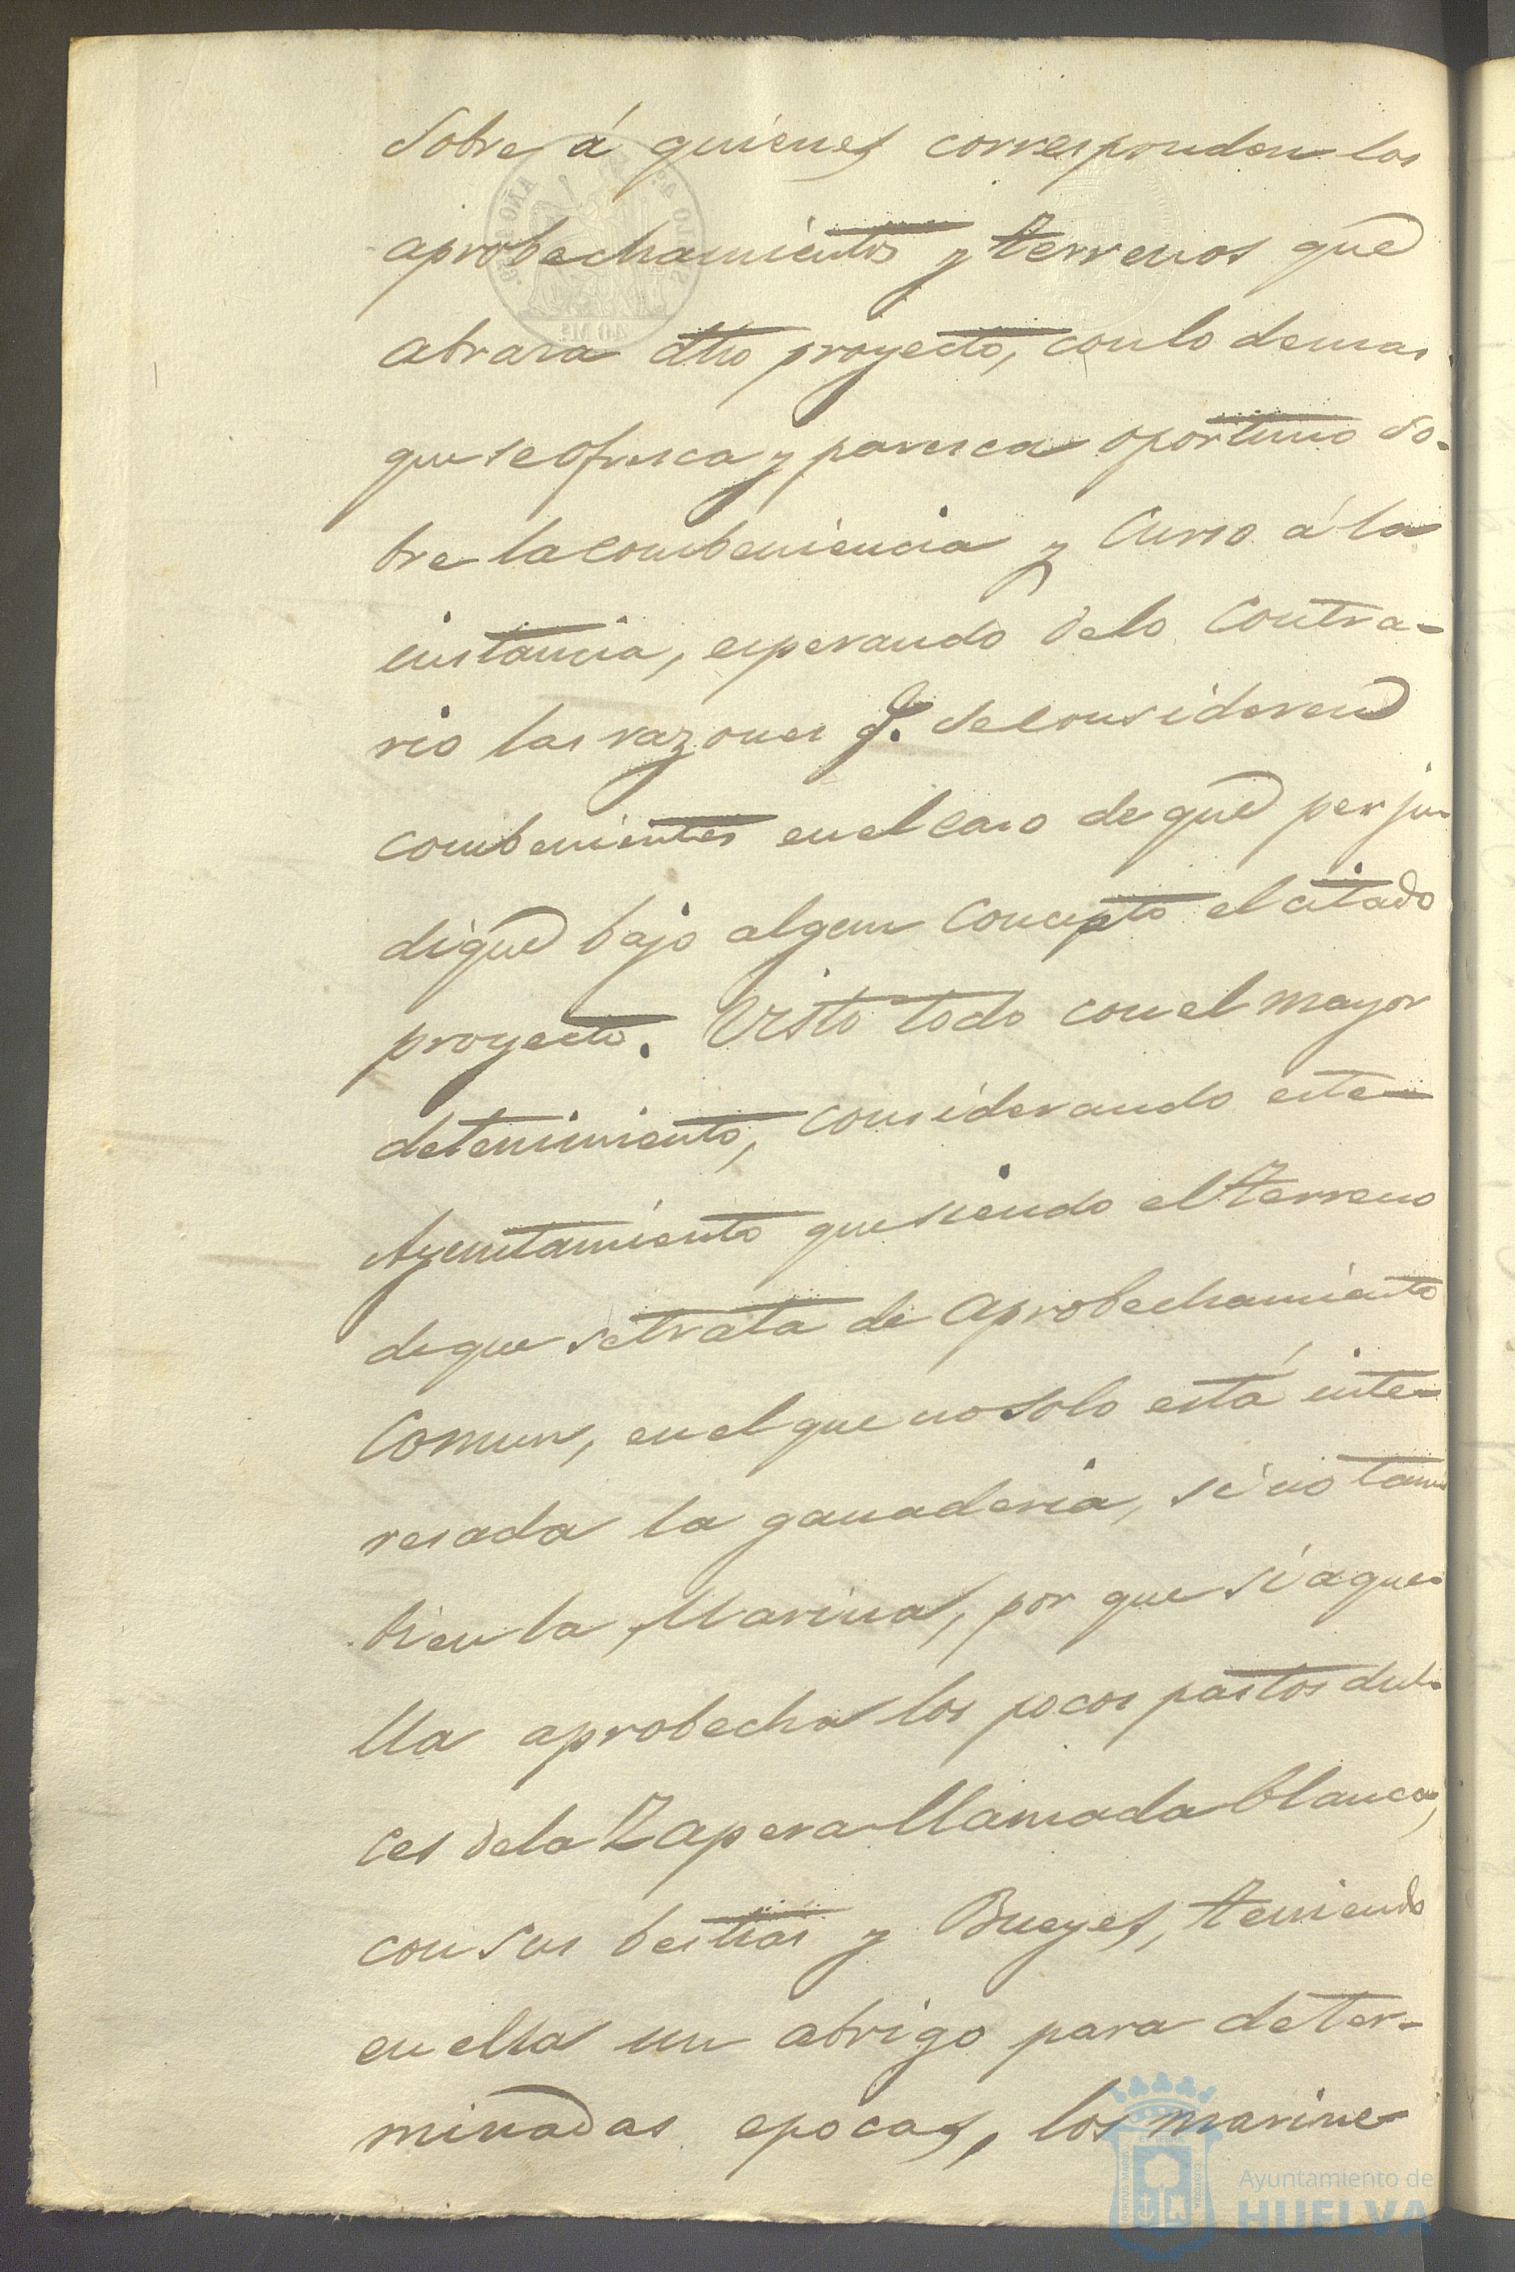 Sobre á quienes corresponden los
aprobechamientos y terrenos que
abrasa dho proyecto, con lo demas
que se ofresca y paresca oportuno so-
bre la combeniencia y Curso á la
instancia, esperando de lo Contra-
rio las razones q. se consideren
combenientes en el caso de que perju-
dique bajo algun Concepto el citado
proyecto. Visto todo con el mayor
detenimiento, considerando este
Ayuntamiento que siendo el terreno
de que se trata de aprobechamiento
Comun, en el que no solo está inte-
resada la ganaderia, sino tam
bien la Marina, por que si aque-
lla aprobecha los pocos pastos dul-
ces de la Zapera llamada blanca,
con sus bestias y Bueyes, teniendo
en ella un abrigo para deter-
minadas epocas, los marine
Ayuntamiento de
HUELVA